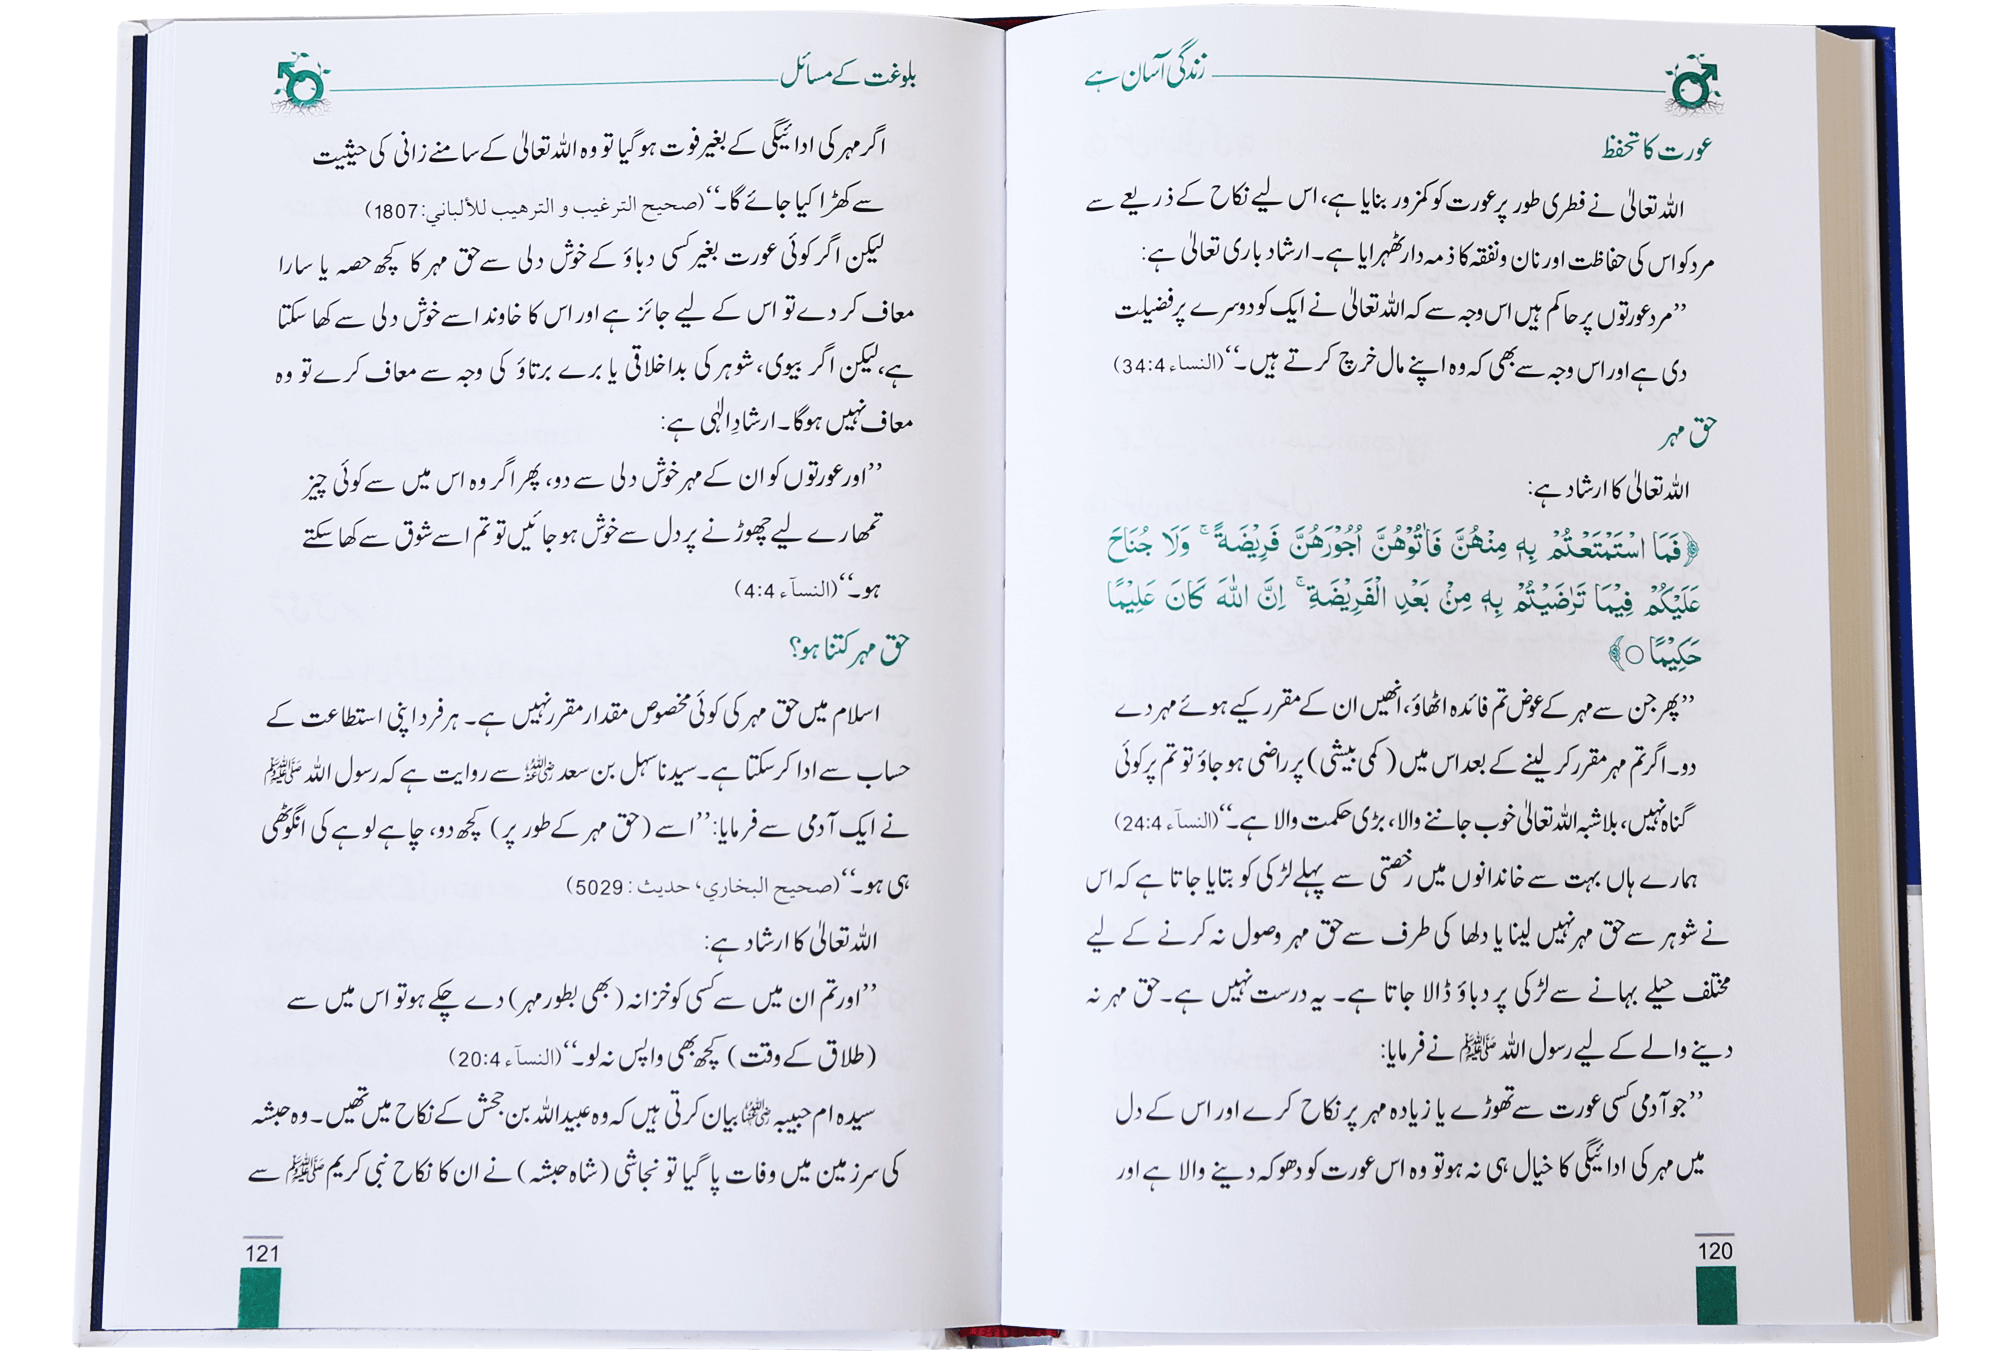 زندگی آسان ہے
عورت کا تحفظ
اللہ تعالیٰ نے فطری طور پر عورت کو کمزور بنایا ہے، اس لیے نکاح کے ذریعے سے
مرد کو اس کی حفاظت اور نان و نفقہ کا ذمہ دار ٹھہرایا ہے۔ ارشاد باری تعالیٰ ہے:
’’مرد عورتوں پر حاکم ہیں اس وجہ سے کہ اللہ تعالیٰ نے ایک کو دوسرے پر فضیلت
دی ہے اور اس وجہ سے بھی کہ وہ اپنے مال خرچ کرتے ہیں۔‘‘ (النساء 34:4)
حق مہر
اللہ تعالیٰ کا ارشاد ہے:
﴿فَمَا اسْتَمْتَعْتُمْ بِهٖ مِنْهُنَّ فَاٰتُوْهُنَّ اُجُوْرَهُنَّ فَرِيْضَةً ۚ وَلَا جُنَاحَ
عَلَيْكُمْ فِيْمَا تَرٰضَيْتُمْ بِهٖ مِنْۢ بَعْدِ الْفَرِيْضَةِ ۚ اِنَّ اللّٰهَ كَانَ عَلِيْمًا
حَكِيْمًا ○﴾
’’پھر جن سے مہر کے عوض تم فائدہ اٹھاؤ، انھیں ان کے مقرر کیے ہوئے مہر دے
دو۔ اگر تم مہر مقرر کر لینے کے بعد اس میں (کمی بیشی) پر راضی ہو جاؤ تو تم پر کوئی
گناہ نہیں، بلاشبہ اللہ تعالیٰ خوب جاننے والا، بڑی حکمت والا ہے۔‘‘ (النسآء 24:4)
ہمارے ہاں بہت سے خاندانوں میں رخصتی سے پہلے لڑکی کو بتایا جاتا ہے کہ اس
نے شوہر سے حق مہر نہیں لینا یا دلھا کی طرف سے حق مہر وصول نہ کرنے کے لیے
مختلف حیلے بہانے سے لڑکی پر دباؤ ڈالا جاتا ہے۔ یہ درست نہیں ہے۔ حق مہر نہ
دینے والے کے لیے رسول اللہ ﷺ نے فرمایا:
’’جو آدمی کسی عورت سے تھوڑے یا زیادہ مہر پر نکاح کرے اور اس کے دل
میں مہر کی ادائیگی کا خیال ہی نہ ہو تو وہ اس عورت کو دھوکہ دینے والا ہے اور
120
بلوغت کے مسائل
اگر مہر کی ادائیگی کے بغیر فوت ہو گیا تو وہ اللہ تعالیٰ کے سامنے زانی کی حیثیت
سے کھڑا کیا جائے گا۔‘‘ (صحیح الترغیب و الترهیب للألباني: 1807)
لیکن اگر کوئی عورت بغیر کسی دباؤ کے خوش دلی سے حق مہر کا کچھ حصہ یا سارا
معاف کر دے تو اس کے لیے جائز ہے اور اس کا خاوند اسے خوش دلی سے کھا سکتا
ہے، لیکن اگر بیوی، شوہر کی بداخلاقی یا برے برتاؤ کی وجہ سے معاف کرے تو وہ
معاف نہیں ہوگا۔ ارشادِ الٰہی ہے:
’’اور عورتوں کو ان کے مہر خوش دلی سے دو، پھر اگر وہ اس میں سے کوئی چیز
تمھارے لیے چھوڑنے پر دل سے خوش ہو جائیں تو تم اسے شوق سے کھا سکتے
ہو۔‘‘ (النسآء 4:4)
حق مہر کتنا ہو؟
اسلام میں حق مہر کی کوئی مخصوص مقدار مقرر نہیں ہے۔ ہر فرد اپنی استطاعت کے
حساب سے ادا کر سکتا ہے۔ سیدنا سہل بن سعد رضی اللہ عنہ سے روایت ہے کہ رسول اللہ ﷺ
نے ایک آدمی سے فرمایا: ’’اسے (حق مہر کے طور پر) کچھ دو، چاہے لوہے کی انگوٹھی
ہی ہو۔‘‘ (صحیح البخاري، حدیث: 5029)
اللہ تعالیٰ کا ارشاد ہے:
’’اور تم ان میں سے کسی کو خزانہ (بھی بطور مہر) دے چکے ہو تو اس میں سے
(طلاق کے وقت) کچھ بھی واپس نہ لو۔‘‘ (النسآء 20:4)
سیدہ ام حبیبہ رضی اللہ عنہا بیان کرتی ہیں کہ وہ عبیداللہ بن جحش کے نکاح میں تھیں۔ وہ حبشہ
کی سرزمین میں وفات پا گیا تو نجاشی (شاہ حبشہ) نے ان کا نکاح نبی کریم ﷺ سے
121